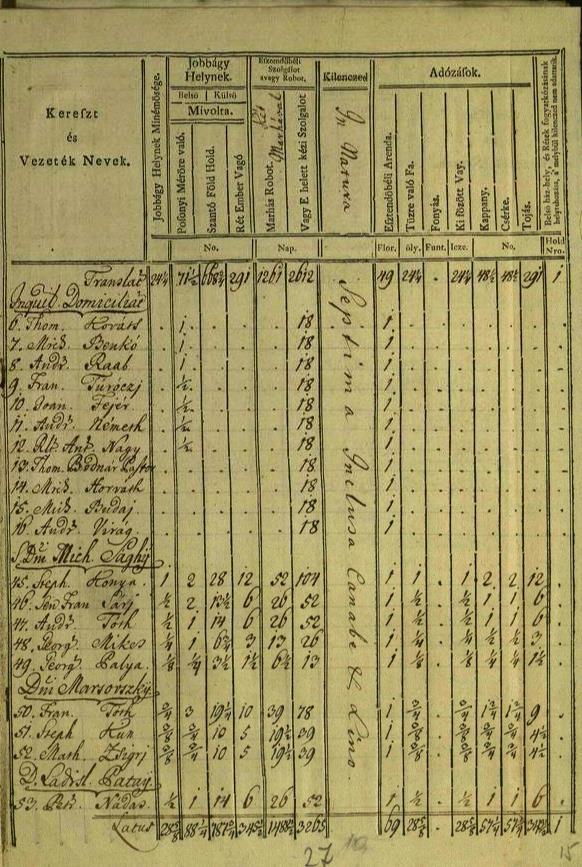 Kereszt és Vezeték Nevek.
Jobbágy Helynek Minémösége.
Jobbágy Helynek.
Belső Külső
Mivolta.
Posonyi Mérőre való.
Szántó Föld Hold.
Rét Ember Vagó
Esztendőbéli Szolgalot avagy Robot.
Marhás Robot. Két Marhával
Vagy E helett kézi Szolgalot
Kilenczed
In Natura
Adózások.
Esztendőbéli Arenda.
Tűzre való Fa.
Fonyáz.
Ki főzött Vay.
Kappany.
Csérke.
Tojás.
No. Nap. Flor. öly. Funt. Icze. No. Hold Nro.
Septima Inclusa Canabe & Lino
Translat 24¼ 71½ 291 1261 2612 49 24¼ . 24¼ 48½ 48½ 291 1
Inquil. Domiciliati
6. Thom. Horváts . 1 . . . 18 1
7. Mich. Benkó . 1 . . . 18 1
8. Andr. Raab . 1 . . . 18 1
9. Fran. Turoczj . ½ . . . 18 1
10. Joan. Fejér . ½ . . . 18 1
11. Andr. Németh . ½ . . . 18 1
12. Ant. Nagy . ½ . . . 18 1
13. Thom. Bodnár 18 1
14. Mich. Horváth 18 1
15. Mich. Budaj 18 1
16. Andr. Virág 18 1
Mich. Sághÿ
45. Steph. Konya 1 2 28 12 52 104 1 1 . 1 2 2 12
46. Fran ½ 2 13½ 6 26 52 1 ½ . ½ 1 1 6
47. Andr Tóth ½ 1 14 6 26 52 1 ½ . ½ 1 1 6
48. Georg Mikes ¼ 1 6¾ 3 13 26 1 ¼ . ¼ ½ ½ 3
49. Georg Palya ⅛ ¼ 3½ 1½ 6½ 13 1 ⅛ . ⅛ ¼ ¼ 1½
Dni Marsovszkÿ
50. Fran. Tóth ¾ 3 19¼ 10 39 78 1 ¾ . ¾ 9
51. Steph Kun ⅜ ¾ 10 5 19½ 39 1 ⅜ . ⅜ ¾ ¾ 4½
52. Math. ⅜ ¾ 10 5 19½ 39 1 ⅜ . ⅜ ¾ ¾ 4½
D. Ladisl. Patay
53. Petr Nádas ½ 1 14 6 26 52 1 ½ . ½ 1 1 6
Latus 28⅝ 88¼ 3265 69 28⅝ . 28⅝ 57¼ 57¼ 1
27
15